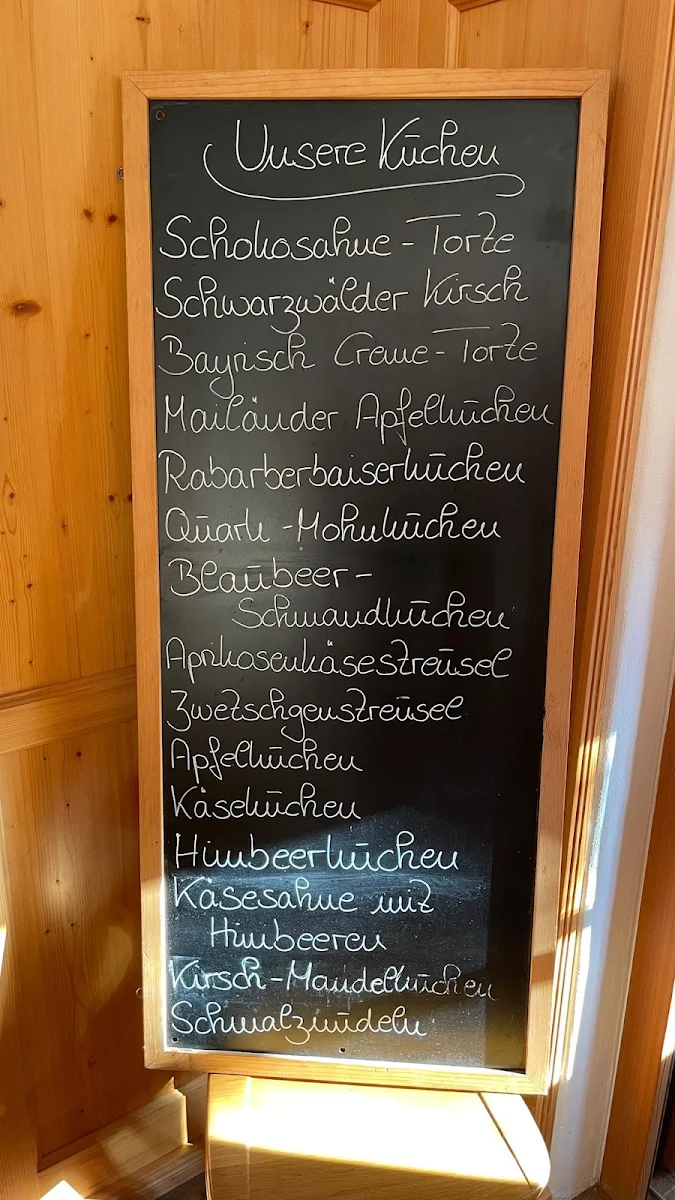 Unsere Kuchen
Schokosahne - Torte
Schwarzwälder Kirsch
Bayrisch Creme - Torte
Mailänder Apfelkuchen
Rabarberbaiserkuchen
Quark - Mohnkuchen
Blaubeer -
Schmandkuchen
Aprikosenkäsestreusel
Zwetschgenstreusel
Apfelkuchen
Käsekuchen
Himbeerkuchen
Käsesahne mit
Himbeeren
Kirsch - Mandelkuchen
Schmalznudeln